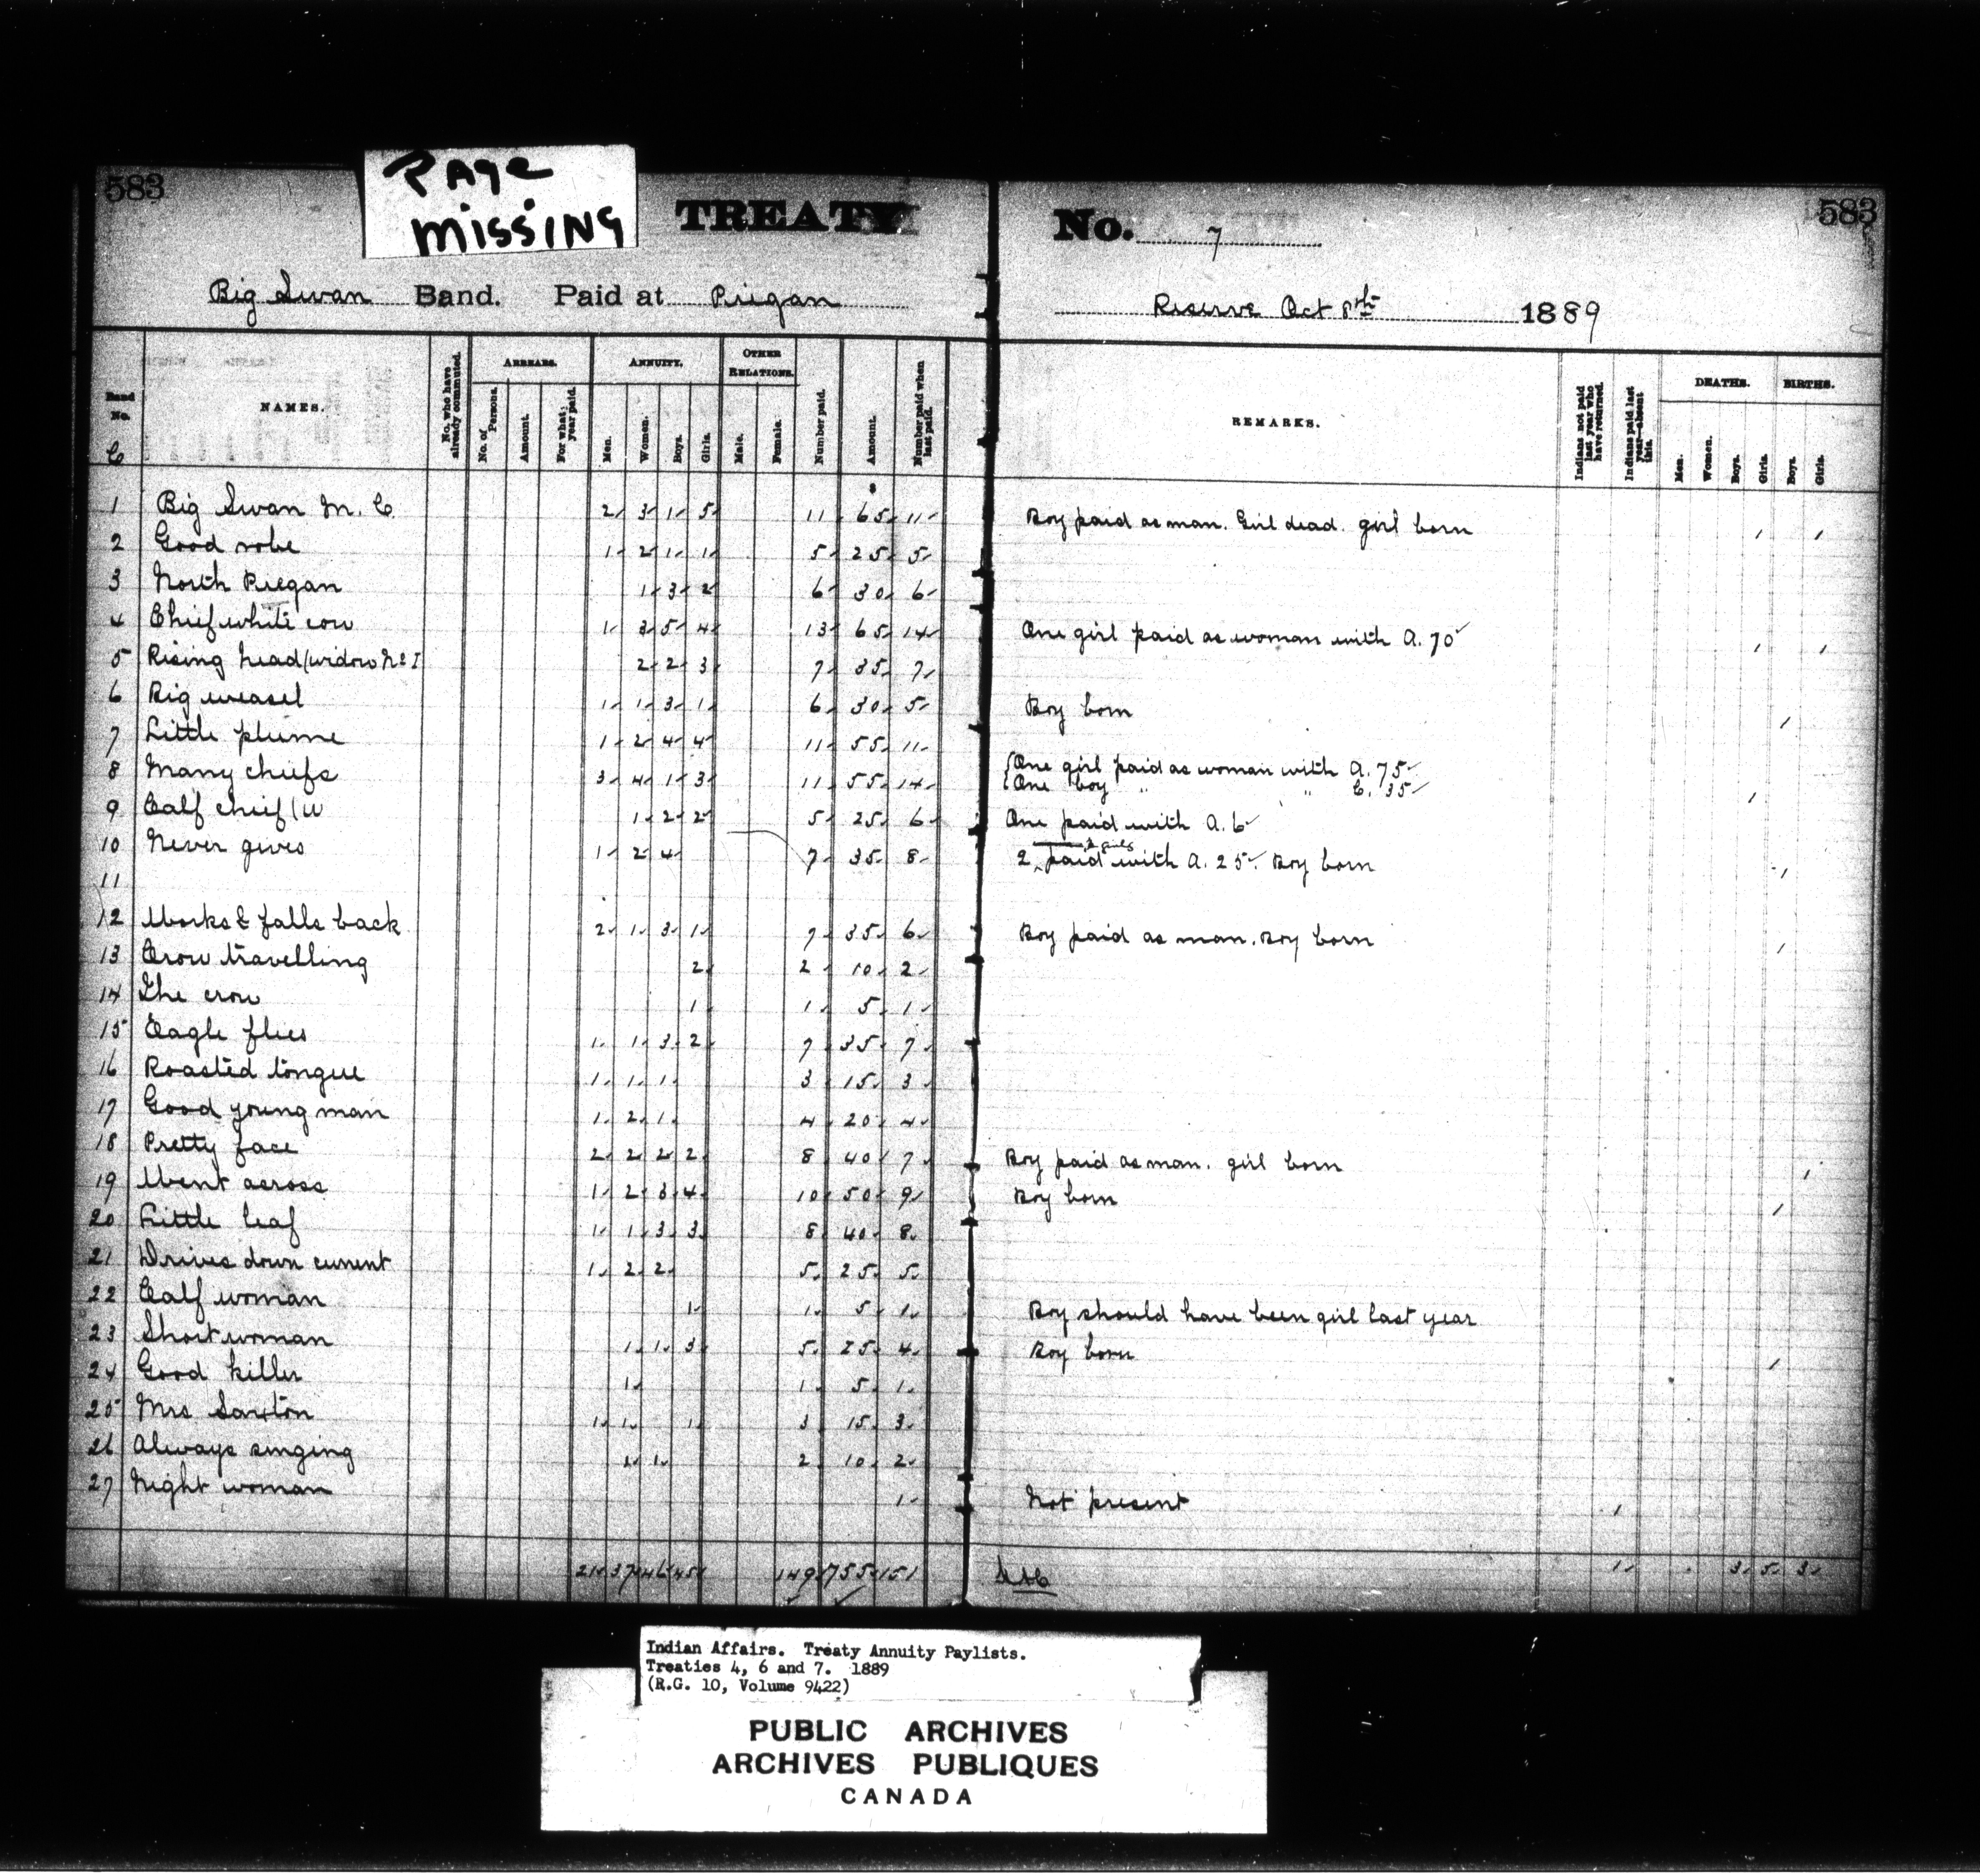 583
PAGE
MISSING
TREATY No. 7
583
Big Swan Band. Paid at Piegan Reserve Oct 8th 1889
Band No. NAMES. No. who have already commuted. ARREARS. ANNUITY. OTHER RELATIONS. Number paid. Amount. Number paid when last paid. REMARKS. Indians not paid last year who have returned. Indians paid last year—absent this. DEATHS. BIRTHS.
C No. of Persons. Amount. For what year paid. Men. Women. Boys. Girls. Male. Female. Men. Women. Boys. Girls. Boys. Girls.
$
1 Big Swan M. C. 2 3 1 5 11 65 11 Boy paid as man. Girl dead. girl born 1 1
2 Good robe 1 2 1 1 5 25 5
3 North Piegan 1 3 2 6 30 6
4 Chief white cow 1 3 5 4 13 65 14 One girl paid as woman with A. 70 1 1
5 Rising head (widow No I 2 2 3 7 35 7
6 Big weasel 1 1 3 1 6 30 5 Boy born 1
7 Little plume 1 2 4 4 11 55 11
8 Many chiefs 3 4 1 3 11 55 14 {One girl paid as woman with A. 75
{One boy " " C. 35
9 Calf chief (W 1 2 2 5 25 6 One paid with A. 6 1
10 Never gives 1 2 4 7 35 8 2 girls paid with A. 25. Boy born 1
11
12 Works & falls back 2 1 3 1 7 35 6 Boy paid as man. Boy born 1
13 Crow travelling 2 2 10 2
14 The crow 1 1 5 1
15 Eagle flies 1 1 3 2 7 35 7
16 Roasted tongue 1 1 1 3 15 3
17 Good young man 1 2 1 4 20 4
18 Pretty face 2 2 2 2 8 40 7 Boy paid as man. girl born 1
19 Went across 1 2 3 4 10 50 9 Boy born 1
20 Little leaf 1 1 3 3 8 40 8
21 Drives down current 1 2 2 5 25 5
22 Calf woman 1 1 5 1 Boy should have been girl last year
23 Short woman 1 1 3 5 25 4 Boy born 1
24 Good killer 1 1 5 1
25 Mrs Saxton 1 1 1 3 15 3
26 Always singing 1 1 2 10 2
27 Night woman 1 Not present 1
21 37 46 45 149 755 151 1 3 5 3
Indian Affairs. Treaty Annuity Paylists.
Treaties 4, 6 and 7. 1889
(R.G. 10, Volume 9422)
PUBLIC ARCHIVES
ARCHIVES PUBLIQUES
CANADA